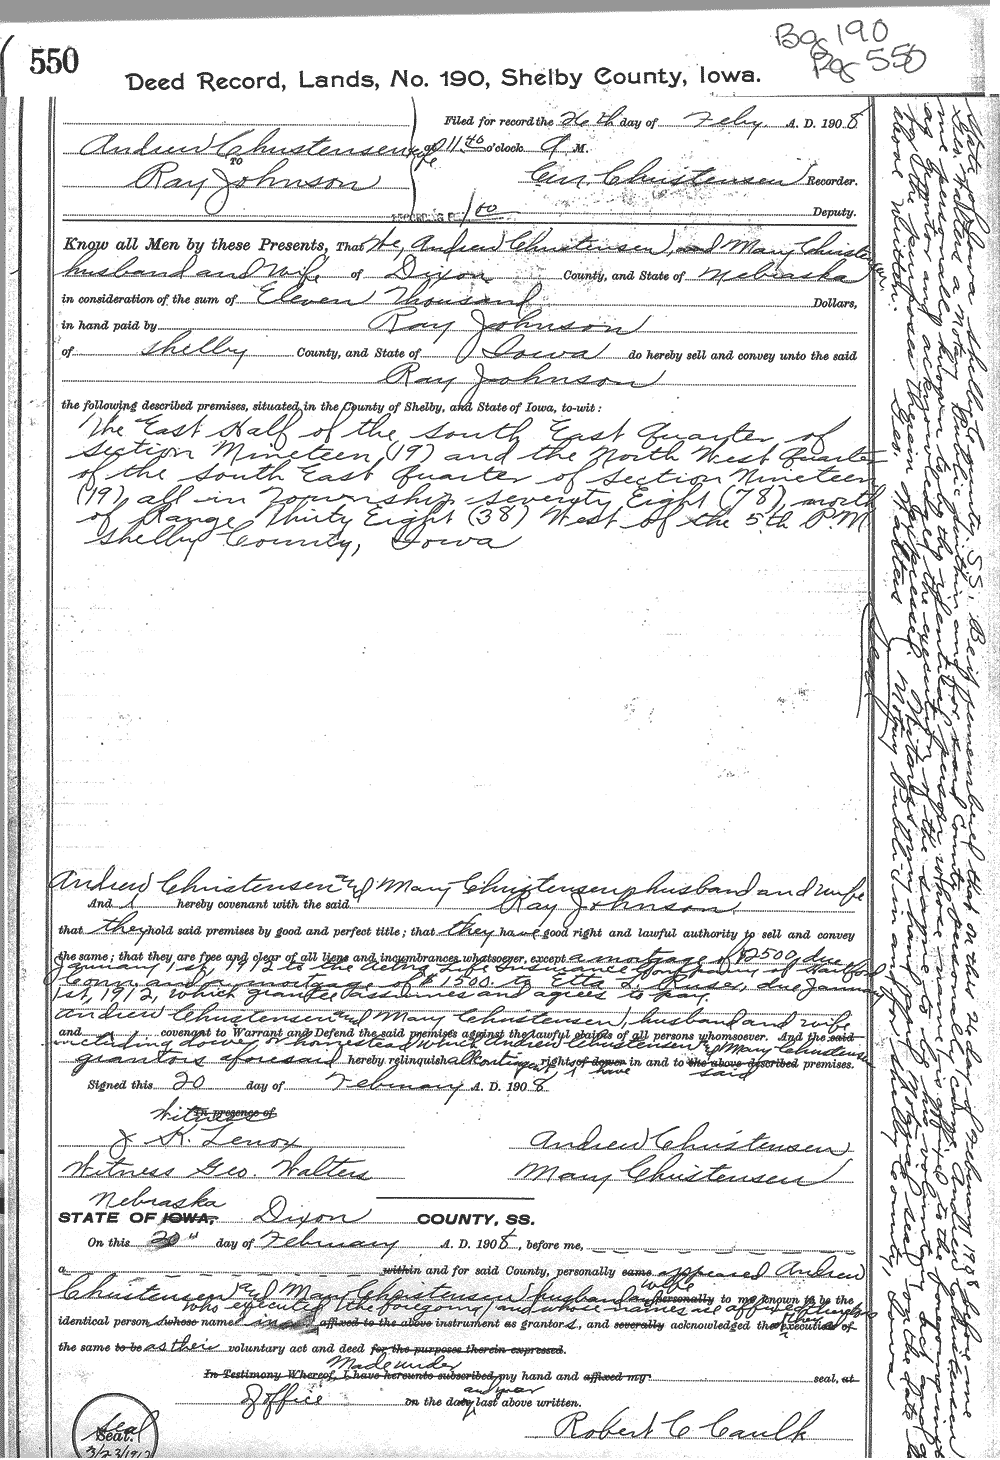 550
Bog 190
Pag 550
Deed Record, Lands, No. 190, Shelby County, Iowa.
Filed for record the 26th day of Feby A. D. 1908
Andrew Christensen & wife at 11 40 o'clock A M.
TO
Ray Johnson
Christensen Recorder.
1 00 Deputy.
Know all Men by these Presents, That We, Andrew Christensen, and Mary Christensen
husband and wife of Dixon County, and State of Nebraska
in consideration of the sum of Eleven Thousand Dollars,
in hand paid by Ray Johnson
of Shelby County, and State of Iowa do hereby sell and convey unto the said
Ray Johnson
the following described premises, situated in the County of Shelby, and State of Iowa, to-wit:
The East Half of the South East Quarter of
Section Nineteen (19) and the North West Quarter
of the South East Quarter of Section Nineteen
(19) all in Township Seventy Eight (78), north
of Range Thirty Eight (38) West of the 5th P.M.
Shelby County, Iowa
Andrew Christensen and Mary Christensen, husband and wife
And hereby covenant with the said Ray Johnson
that they hold said premises by good and perfect title; that they have good right and lawful authority to sell and convey
the same; that they are free and clear of all liens and incumbrances whatsoever, except a mortgage of $2500, due
January 1st, 1912 to the Aetna Life Insurance Company of Hartford
Conn and a mortgage of $1500 to Etta L. due January
1st, 1912, which grantee assumes and agrees to pay.
Andrew Christensen and Mary Christensen, husband and wife
and covenant to Warrant and Defend the said premises against the lawful claims of all persons whomsoever. And the said
including dower or homestead which Andrew Christensen and Mary Christensen
grantors aforesaid hereby relinquish all contingent rights of dower in and to the above described premises.
have said
Signed this 20 day of February A. D. 1908
In presence of
Witness
J K. Lenox Andrew Christensen
Witness Geo. Walters Mary Christensen
Nebraska
STATE OF IOWA, Dixon COUNTY, SS.
On this 20" day of February A. D. 1908, before me,
a within and for said County, personally came appeared Andrew
Christensen and Mary Christensen husband and wife personally to me known to be the
who executed the foregoing and whose names are affixed thereto
identical person whose name affixed to the above instrument as grantors, and severally acknowledged the execution of
the same to be as their voluntary act and deed for the purposes therein expressed.
Made under
In Testimony Whereof, I have hereunto subscribed my hand and affixed my seal, at
of office on the day and year last above written.
Seal
Seal.
3/23/1912
Robert C Caulk
State of Iowa Shelby County, SS. Be it remembered that on this 26 day of February 1908 before me
Geo Walters a notary Public within and for said County, personally appeared Andrew Christensen
to me personally known to be the identical person whose name is affixed to the foregoing instrument
as grantor and acknowledged the execution of the same to be his voluntary act and deed
for the purposes therein expressed. Witness my hand and Notarial seal on the date
above written. Geo. Walters
Notary public in and for Shelby County, Iowa.
Seal